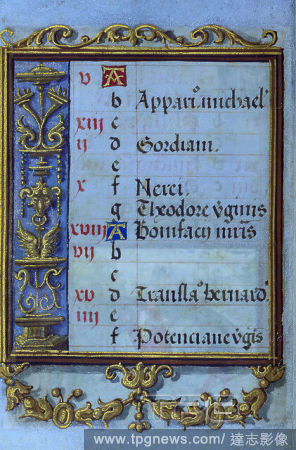 v A
b Appari.° michael'
xiij c
ij d Gordiani.
e
x f Nerei.
g Theodore v̄ginis
xviij A Bonifacij mr̄is
vij b
c
xv d Transla.° bernard'
iiij e
f Potenciane v̄gis
www.tpgnews.com/ 達志影像